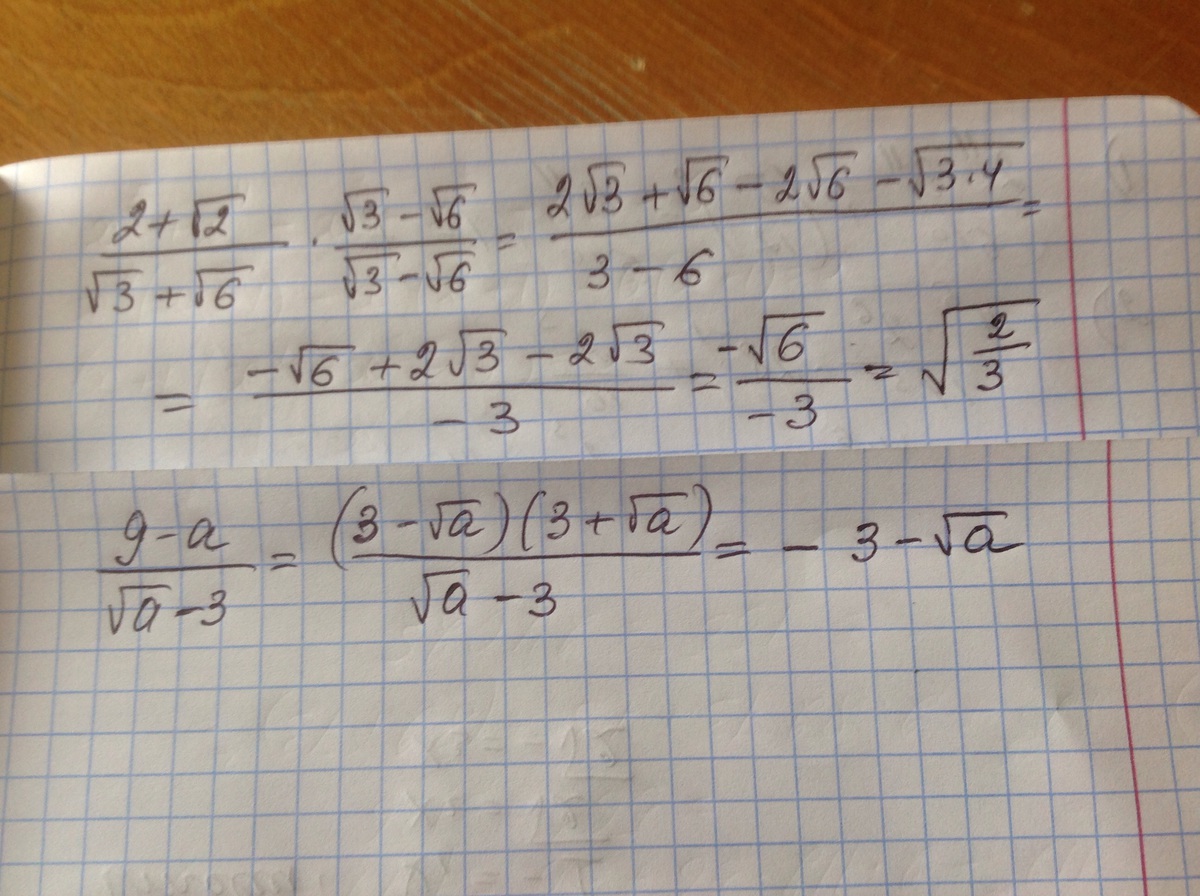 (2+√2)/(√3+√6) · (√3-√6)/(√3-√6) = (2√3+√6-2√6-√(3·4))/(3-6) =
= (-√6+2√3-2√3)/(-3) = (-√6)/(-3) = √(2/3)
(9-a)/(√a-3) = ((3-√a)(3+√a))/(√a-3) = -3-√a